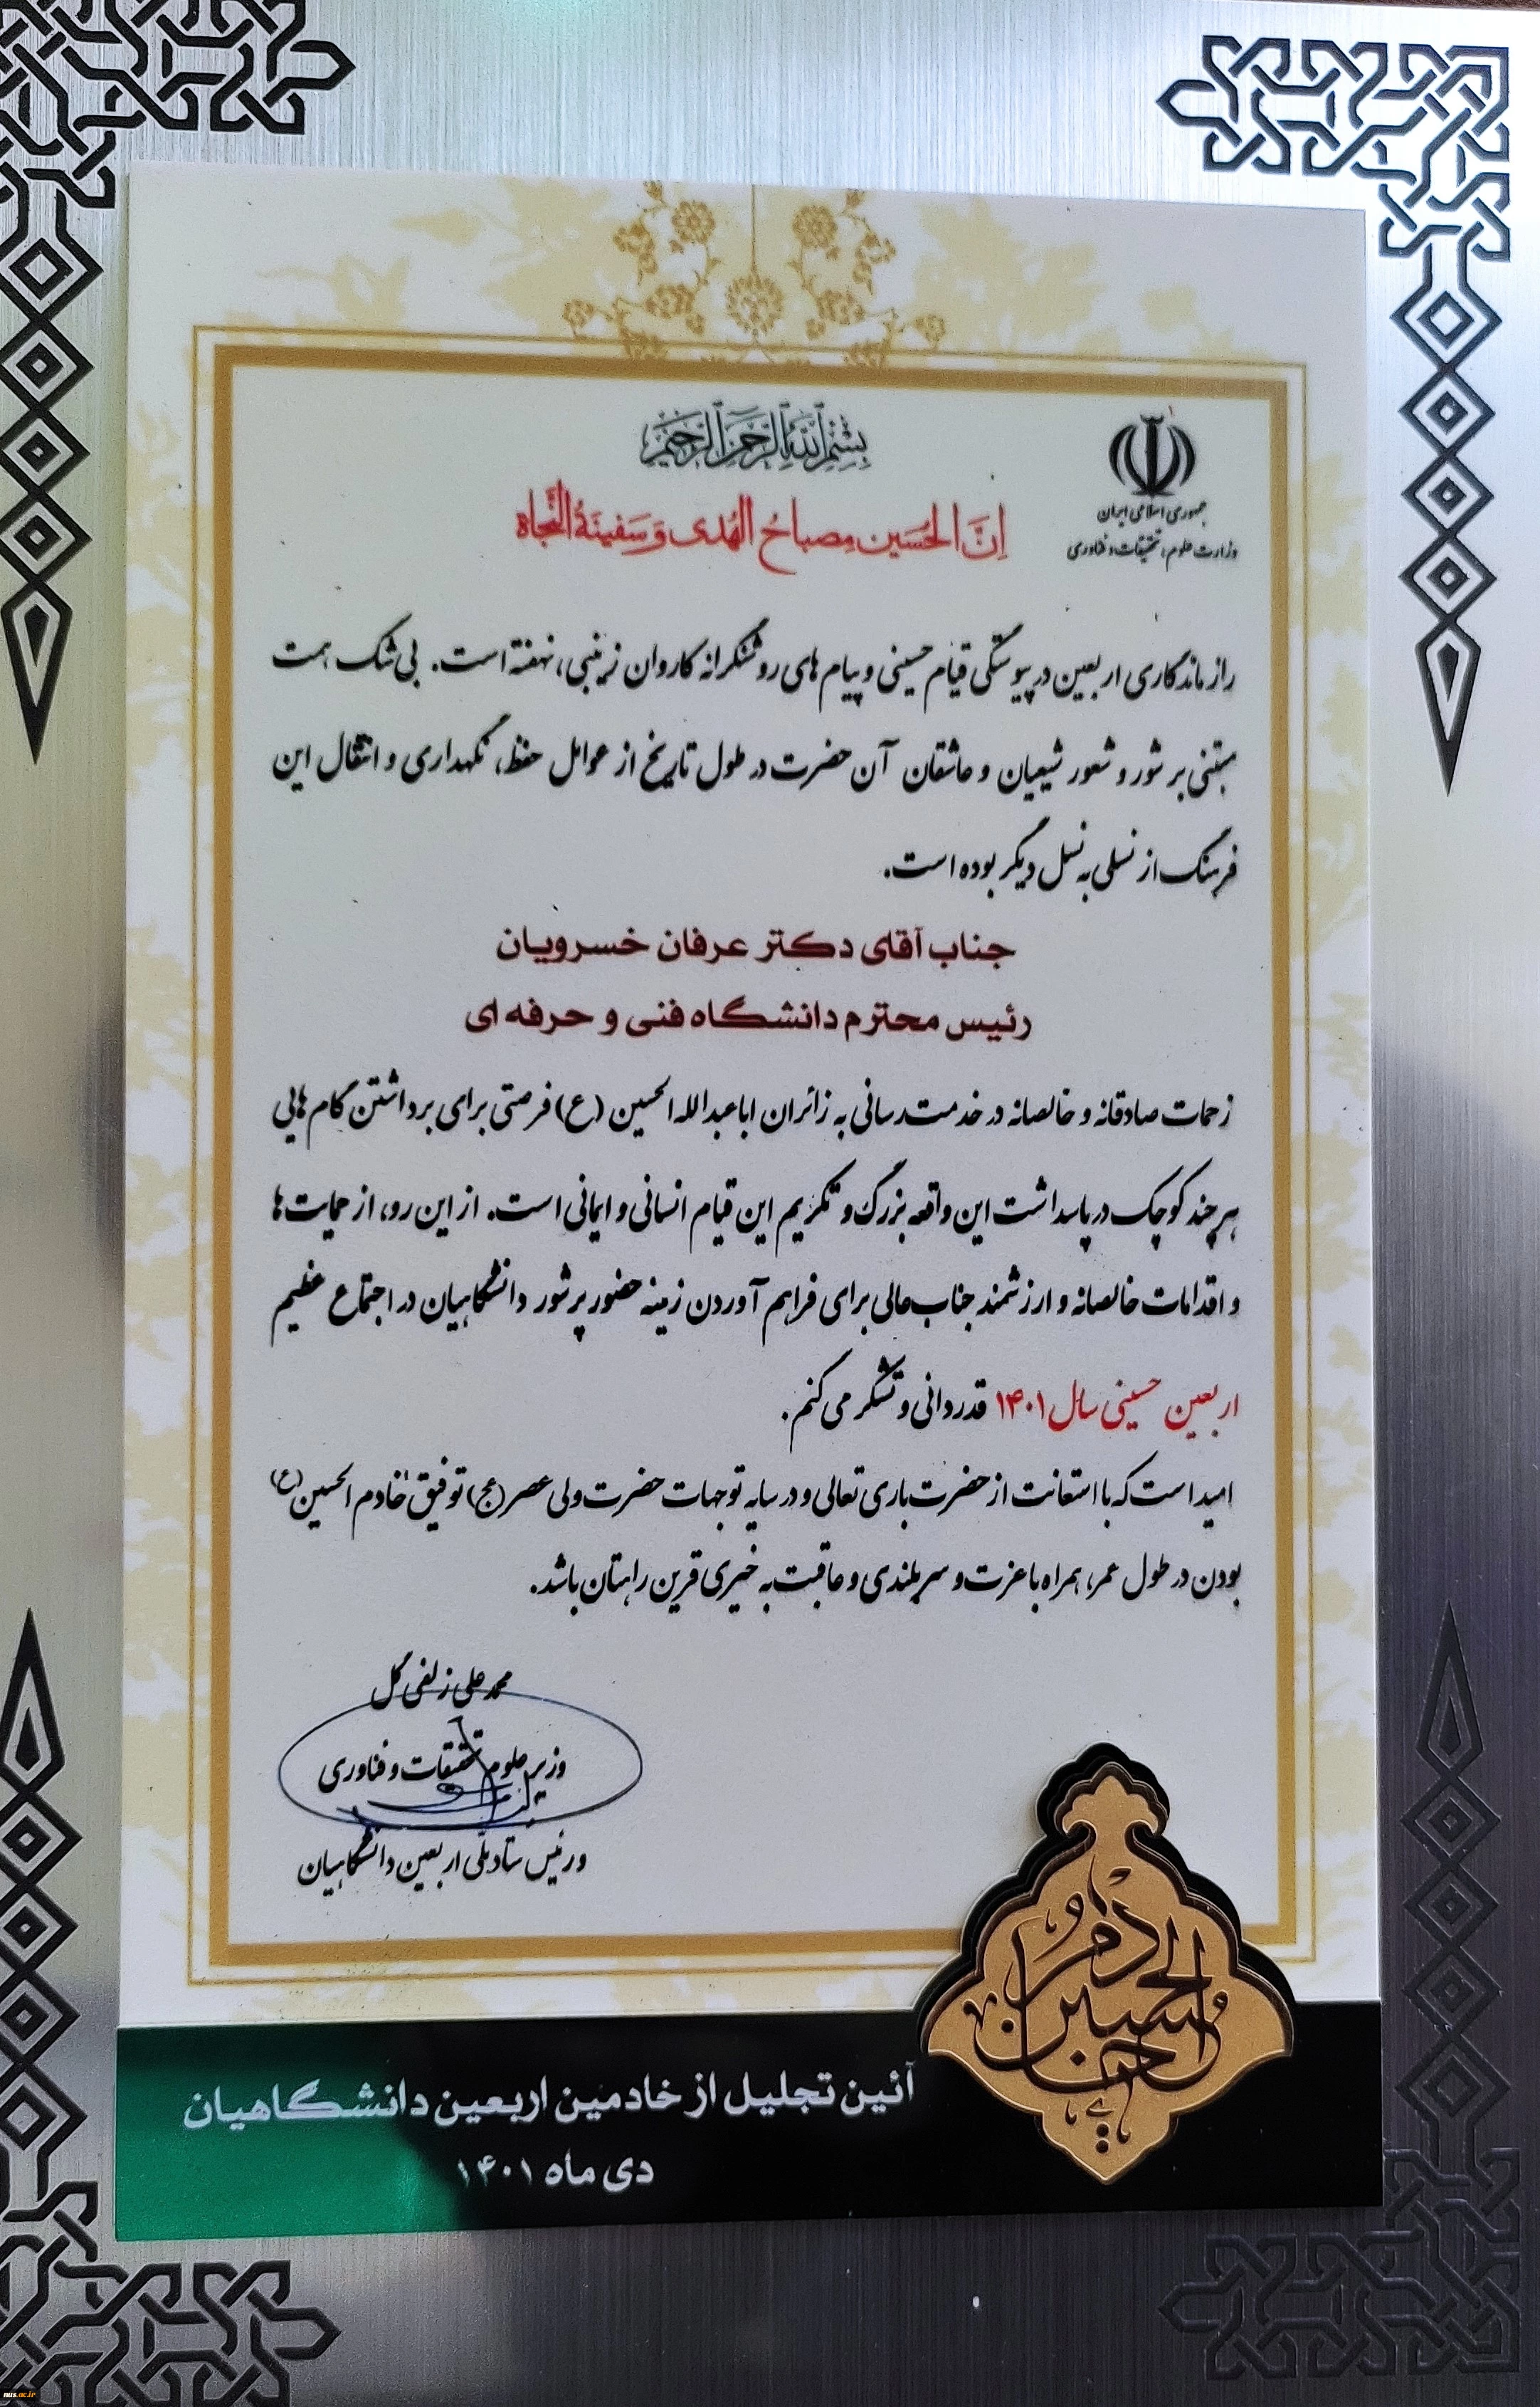 بسم الله الرحمن الرحیم
اِنَّ الحُسَین مِصباحُ الهُدی وَ سَفینَةُ النَّجاة
جمهوری اسلامی ایران
وزارت علوم، تحقیقات و فناوری
راز ماندگاری اربعین در پیوستگی قیام حسینی و پیام های روشنگرانه کاروان زینبی، نهفته است. بی شک همت
مبتنی بر شور و شعور شیعیان و عاشقان آن حضرت در طول تاریخ از عوامل حفظ، نگهداری و انتقال این
فرهنگ از نسلی به نسل دیگر بوده است.
جناب آقای دکتر عرفان خسرویان
رئیس محترم دانشگاه فنی و حرفه ای
زحمات صادقانه و خالصانه در خدمت رسانی به زائران اباعبدالله الحسین (ع) فرصتی برای برداشتن گام هایی
هر چند کوچک در پاسداشت این واقعه بزرگ و تکریم این قیام انسانی و ایمانی است. از این رو، از حمایت ها
و اقدامات خالصانه و ارزشمند جناب عالی برای فراهم آوردن زمینه حضور پرشور دانشگاهیان در اجتماع عظیم
اربعین حسینی سال ۱۴۰۱ قدردانی و تشکر می کنم.
امید است که با استعانت از حضرت باری تعالی و در سایه توجهات حضرت ولی عصر (عج) توفیق خادم الحسین (ع)
بودن در طول عمر، همراه با عزت و سربلندی و عاقبت به خیری قرین راهتان باشد.
محمد علی زلفی گل
وزیر علوم تحقیقات و فناوری
و رئیس ستاد ملی اربعین دانشگاهیان
خادم الحسین
آئین تجلیل از خادمین اربعین دانشگاهیان
دی ماه ۱۴۰۱
nus.ac.ir